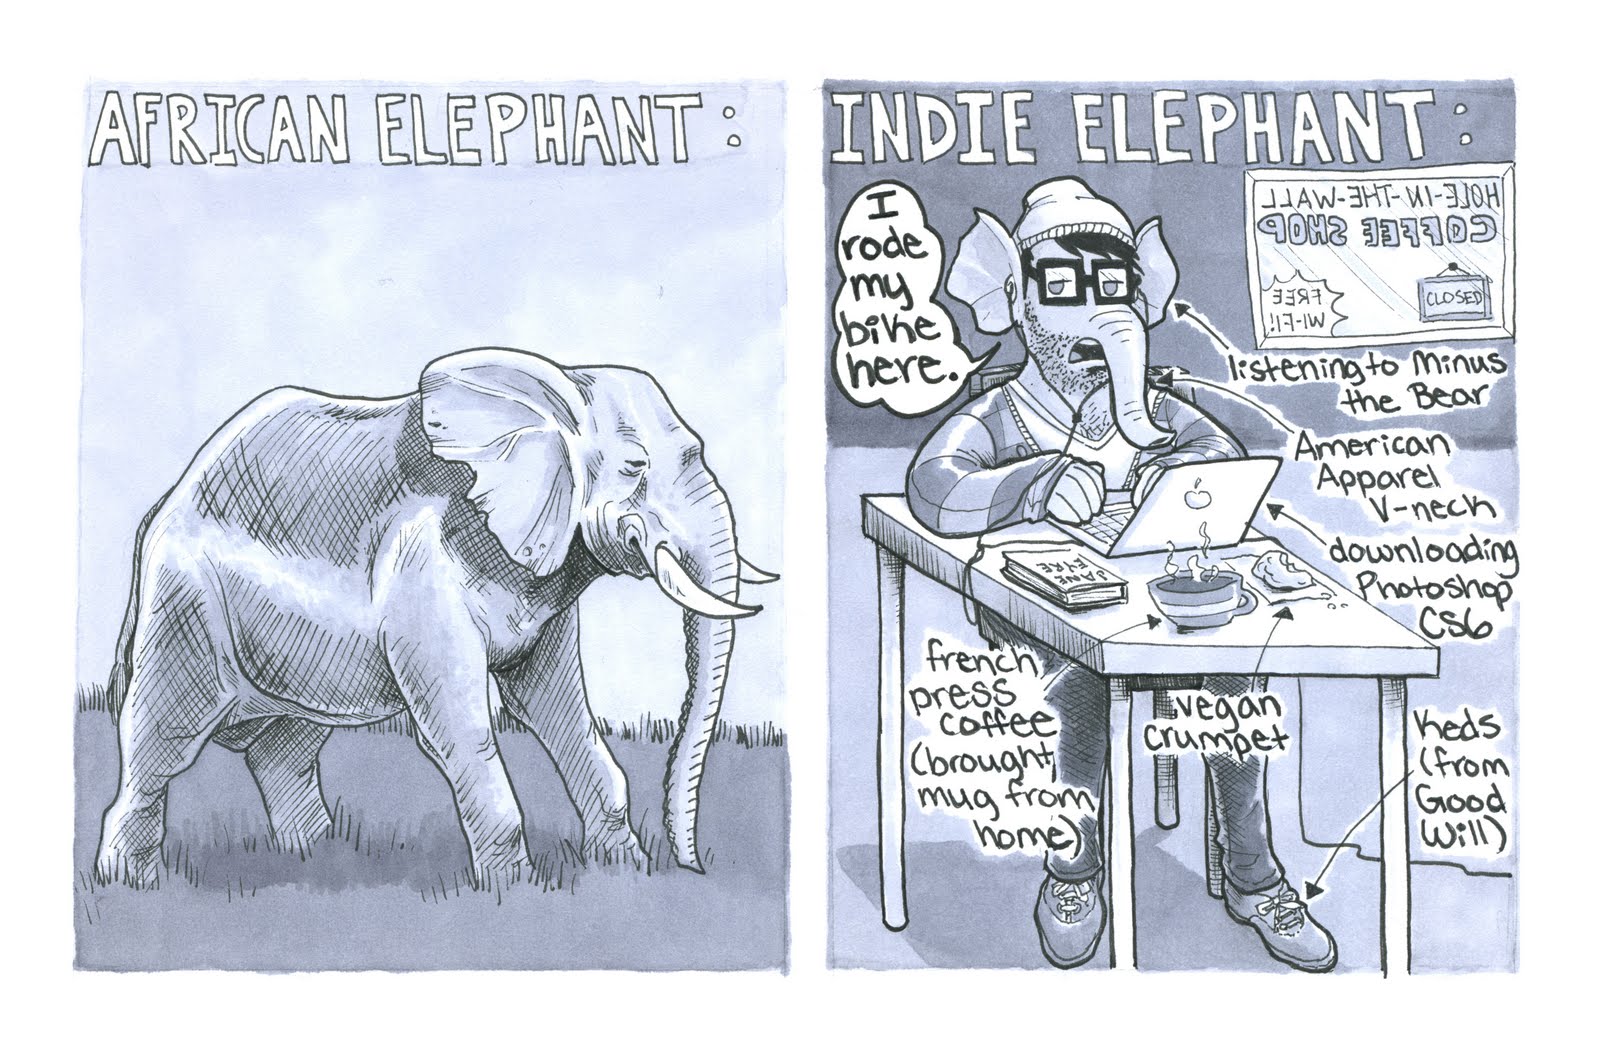 AFRICAN ELEPHANT:
INDIE ELEPHANT:
I
rode
my
bike
here.
HOLE-IN-THE-WALL
COFFEE SHOP
FREE
WI-FI!
CLOSED
listening to Minus
the Bear
American
Apparel
V-neck
downloading
Photoshop
CS6
JANE
EYRE
french
press
coffee
(brought
mug from
home)
vegan
crumpet
Keds
(from
Good
Will)